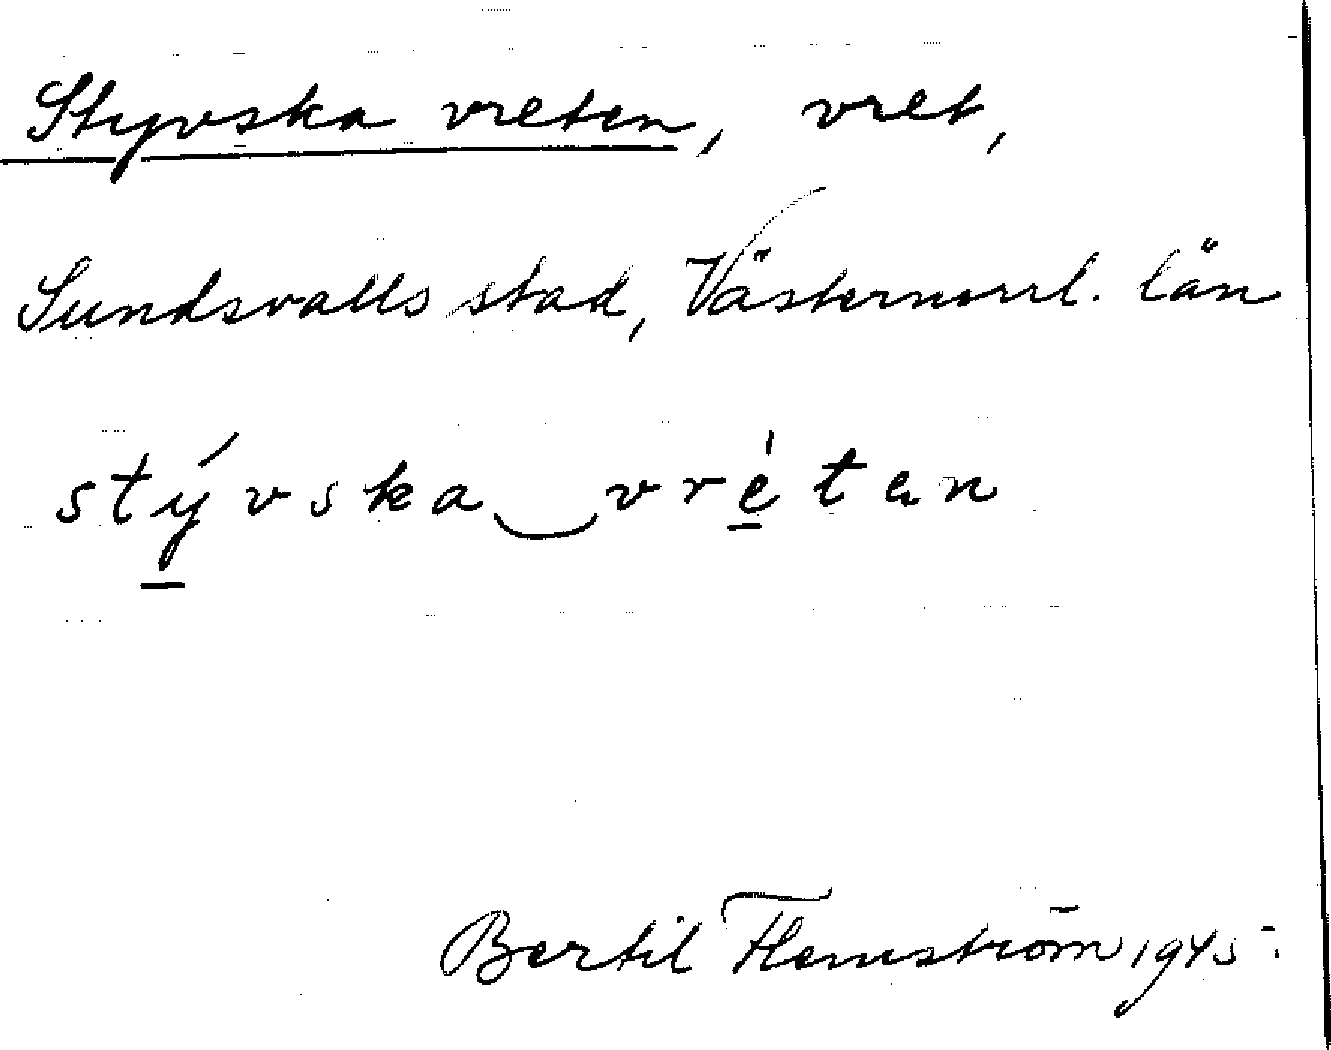 Styvska vreten, vret,
Sundsvalls stad, Västernorrl. län
stývska‿vrètan
Bertil Flemström 1945.